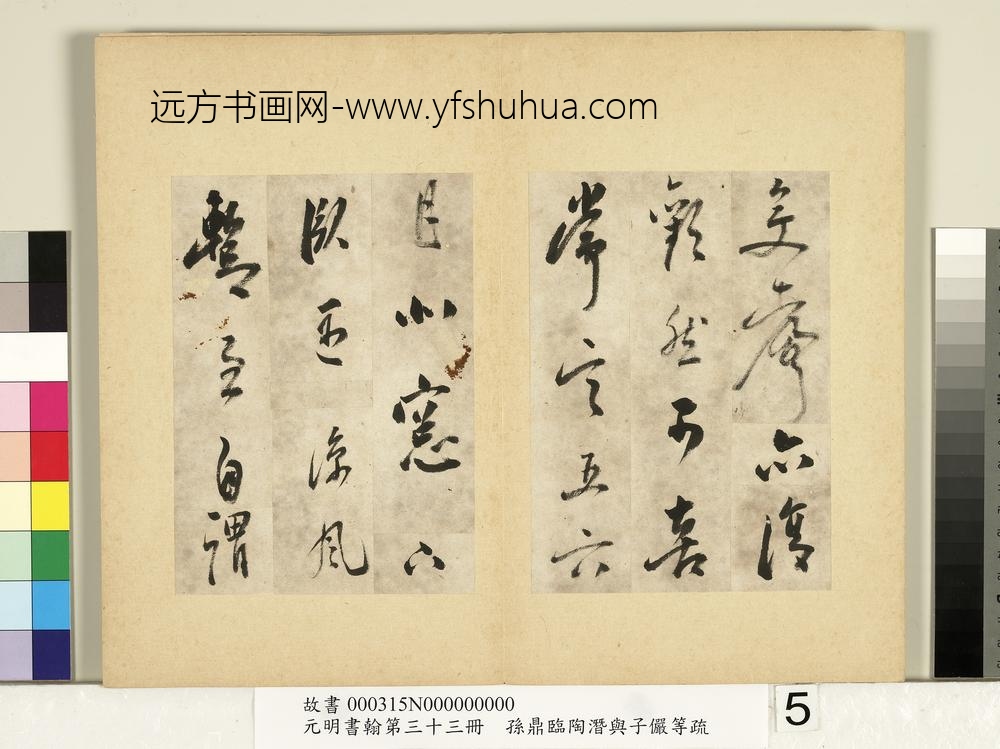 远方书画网-www.yfshuhua.com
變聲亦復
歡然有喜
常言五六
月北窻下
臥遇涼風
暫至自謂
故書 000315N000000000
元明書翰第三十三冊　孫鼎臨陶潛與子儼等疏
5